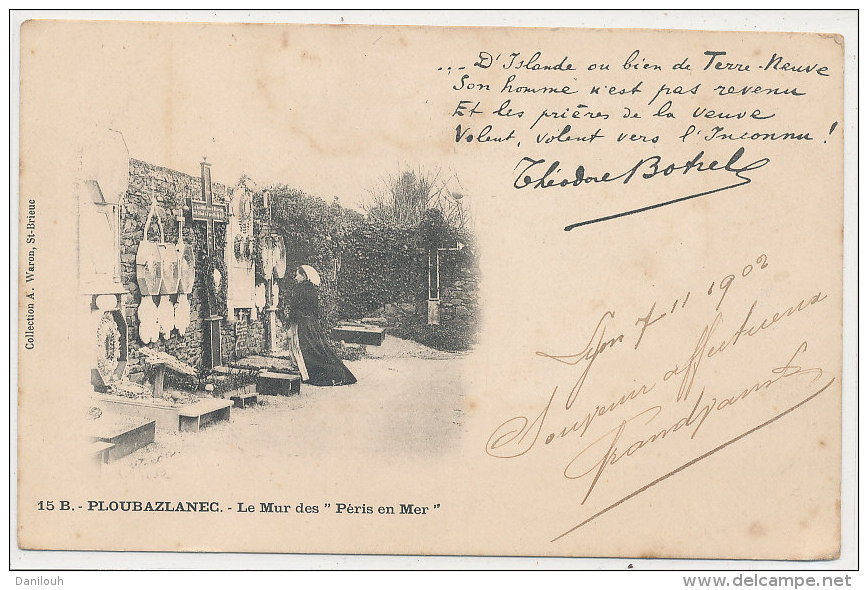 ... D'Islande ou bien de Terre-Neuve
Son homme n'est pas revenu
Et les prières de la veuve
Volent, volent vers l'Inconnu !
Théodore Botrel
Lyon 7 11 1902
Souvenir affectueux
Collection A. Waron, St-Brieuc
15 B. - PLOUBAZLANEC. - Le Mur des " Péris en Mer "
Danilouh
www.delcampe.net